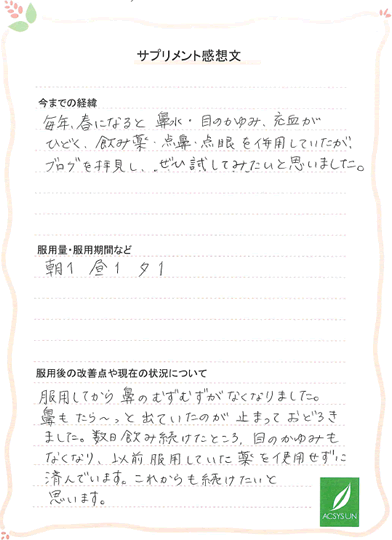 サプリメント感想文
今までの経緯
毎年、春になると 鼻水・目のかゆみ、充血が
ひどく、飲み薬・点鼻・点眼を併用していたが、
ブログを拝見し、ぜひ試してみたいと思いました。
服用量・服用期間など
朝1 昼1 夕1
服用後の改善点や現在の状況について
服用してから鼻のむずむずがなくなりました。
鼻もたら〜っと出ていたのが止まっておどろき
ました。数日飲み続けたところ、目のかゆみも
なくなり、以前服用していた薬を使用せずに
済んでいます。これからも続けたいと
思います。
ACSYSLIN